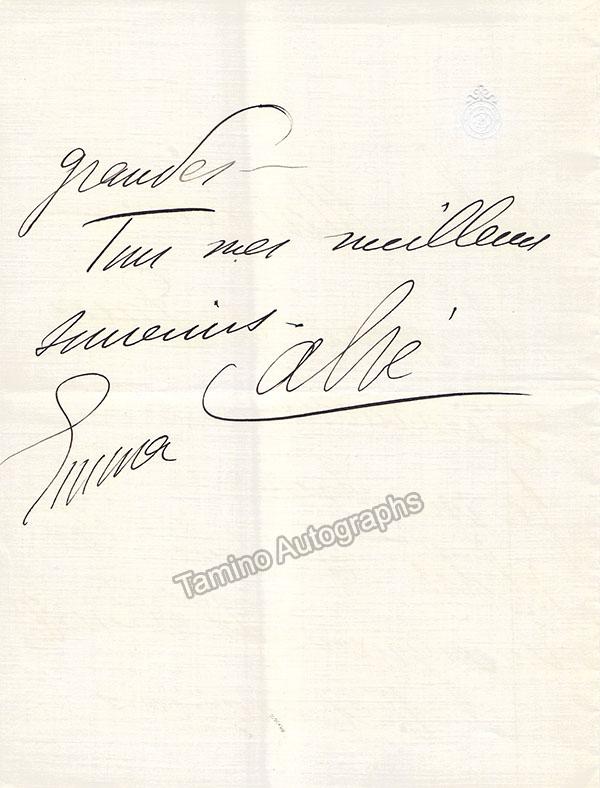 grandes—
Tous mes meilleurs
souvenirs.
Calvé
Emma
Tamino Autographs